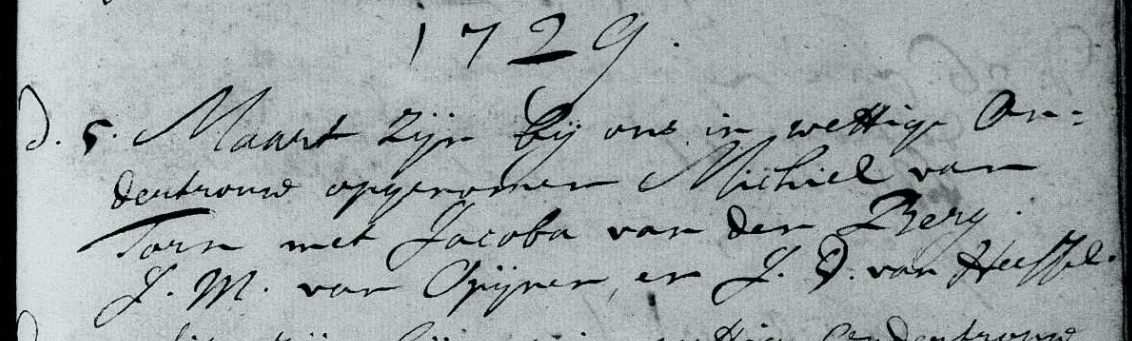 1729.
D. 5. Maart zijn bij ons in wettige On=
dertrouw opgenomen Michiel van
Torn met Jacoba van den Berg.
J. M. van Opijnen, en J. D. van
ondertrouw